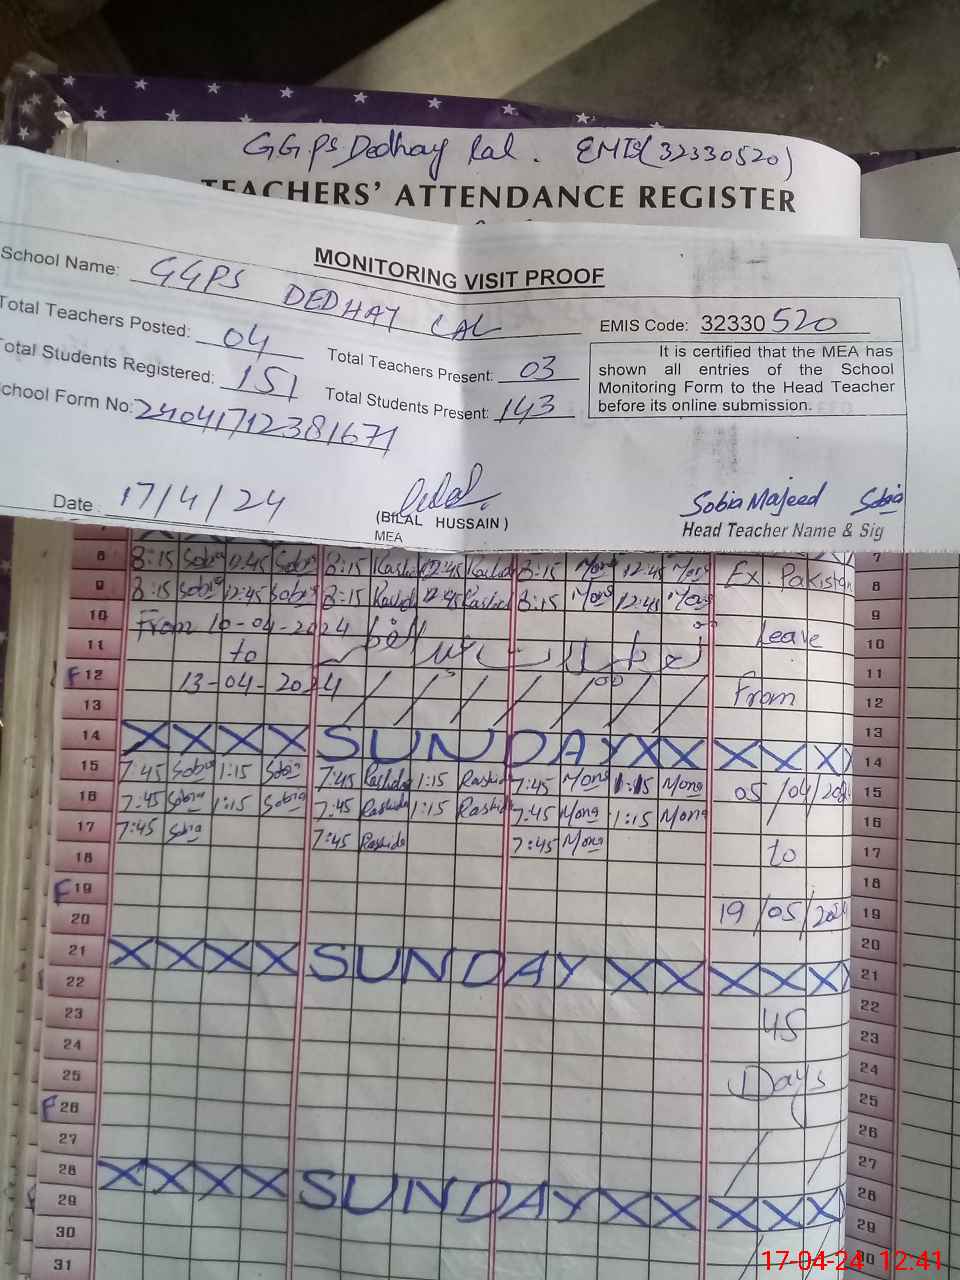 GGPS Dedhay Lal. EMIS(32330520)
TEACHERS' ATTENDANCE REGISTER
MONITORING VISIT PROOF
School Name: GGPS DEDHAY LAL
EMIS Code: 32330520
Total Teachers Posted: 04
Total Teachers Present: 03
Total Students Registered: 151
Total Students Present: 143
School Form No: 24041712381671
It is certified that the MEA has
shown all entries of the School
Monitoring Form to the Head Teacher
before its online submission.
Date: 17/4/24
(BILAL HUSSAIN)
MEA
Sobia Majeed Sobia
Head Teacher Name & Sig
7
8:15 Sobia 12:45 Sobia 8:15 Rashida 12:45 Rashida 8:15 Mona 12:45 Mona Ex. Pakistan
9 8:15 Sobia 12:45 Sobia 8:15 Rashida 12:45 Rashida 8:15 Mona 12:45 Mona 8
10 From 10-04-2024 9
11 to Leave 10
F 12 13-04-2024 11
13 From 12
14 XXXX SUNDAY XX XXX 13
14
15 7:45 Sobia 1:15 Sobia 7:45 Rashida 1:15 Rashida 7:45 Mona 1:15 Mona 05/04/202 15
16 7:45 Sobia 1:15 Sobia 7:45 Rashida 1:15 Rashida 7:45 Mona 1:15 Mona 16
17 7:45 Sobia 7:45 Rashida 7:45 Mona to 17
18 18
F 19 19/05/202 19
20 20
21 XXXX SUNDAY XX XXX 21
22 22
23 45 23
24 24
25 Days 25
F 26 26
27 27
28 XXXX SUNDAY XX XXX 28
29 29
30 30
31
17-04-24 12.41